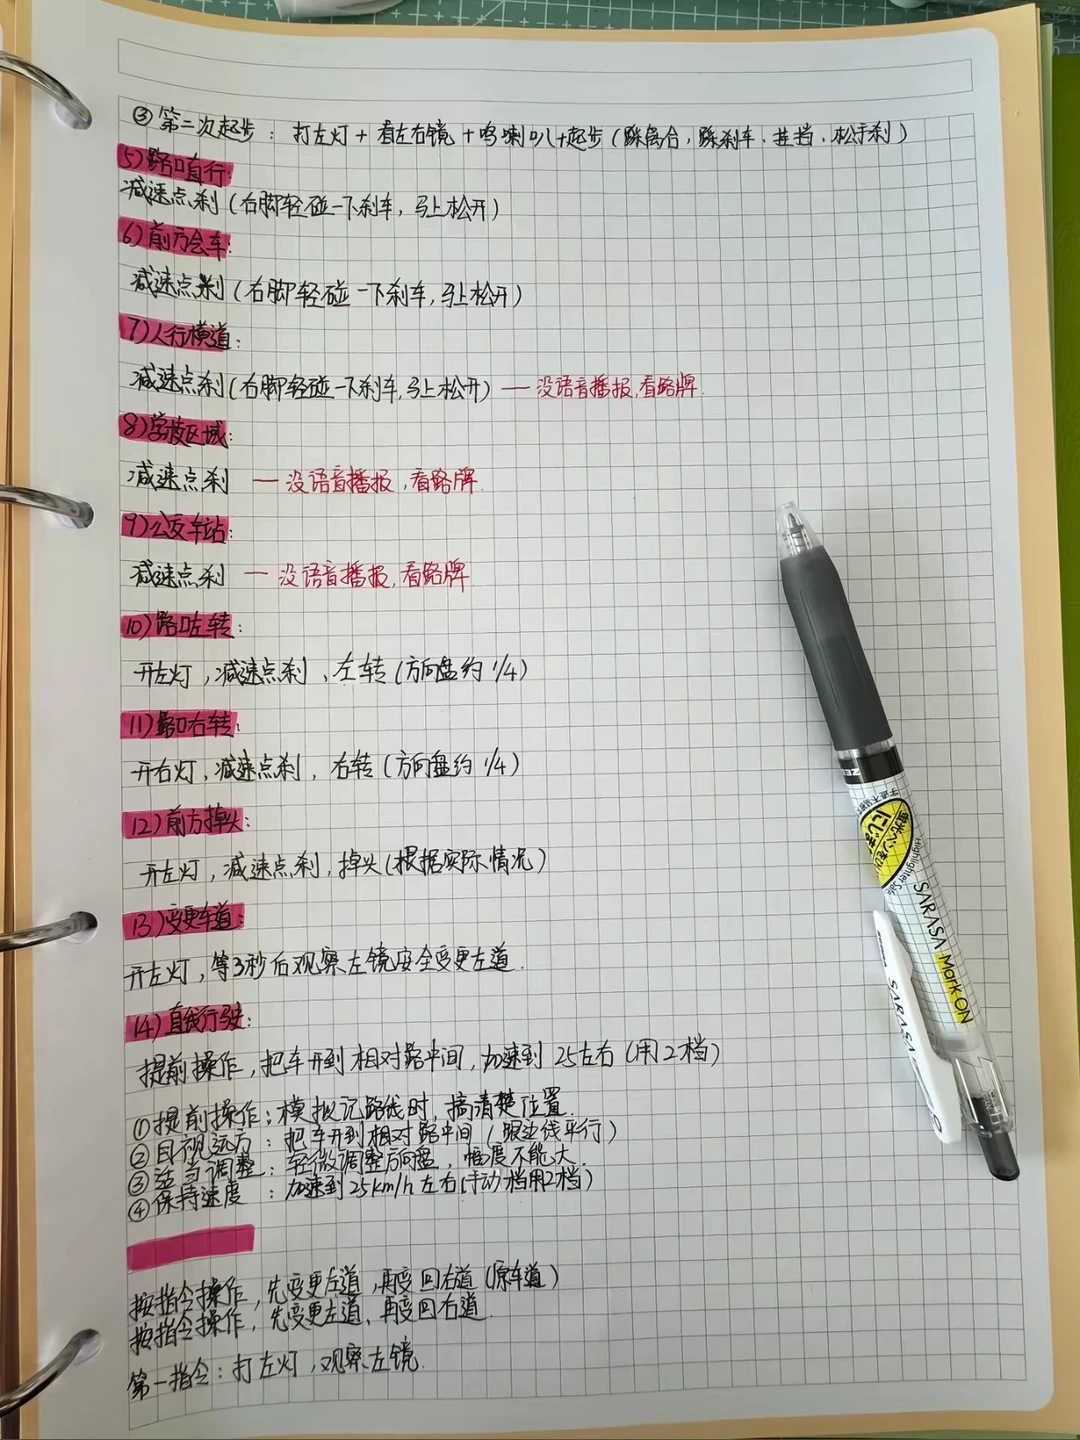 ③第二次起步：打左灯+看左右镜+鸣喇叭+起步(踩离合，踩刹车、挂挡、松手刹)
5)路口直行:
减速点刹(右脚轻碰一下刹车，马上松开)
6)前方会车:
减速点刹(右脚轻碰一下刹车，马上松开)
7)人行横道:
减速点刹(右脚轻碰一下刹车，马上松开) — 没语音播报，看路牌.
8)学校区域:
减速点刹 — 没语音播报，看路牌.
9)公交车站:
减速点刹 — 没语音播报，看路牌
10)路口左转:
开左灯，减速点刹、左转(方向盘约1/4)
11)路口右转:
开右灯，减速点刹，右转(方向盘约1/4)
12)前方掉头:
开左灯，减速点刹，掉头(根据实际情况)
13)变更车道:
开左灯，等3秒后观察左镜安全变更左道.
14)直线行驶:
提前操作，把车开到相对路中间，加速到25左右(用2档)
①提前操作：模拟记路线时，搞清楚位置.
②目视远方：把车开到相对路中间(跟边线平行)
③适当调整：轻微调整方向盘，幅度不能大.
④保持速度：加速到25km/h左右(手动档用2档)
按指令操作，先变更左道，再变回右道(原车道)
按指令操作，先变更左道、再变回右道.
第一指令：打左灯，观察左镜.
ZEBRA
にじまない
Highlighter Safe
SARASA Mark ON
SARASA